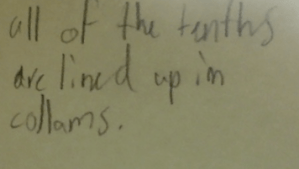 all of the tenths
are lined up in
collams.